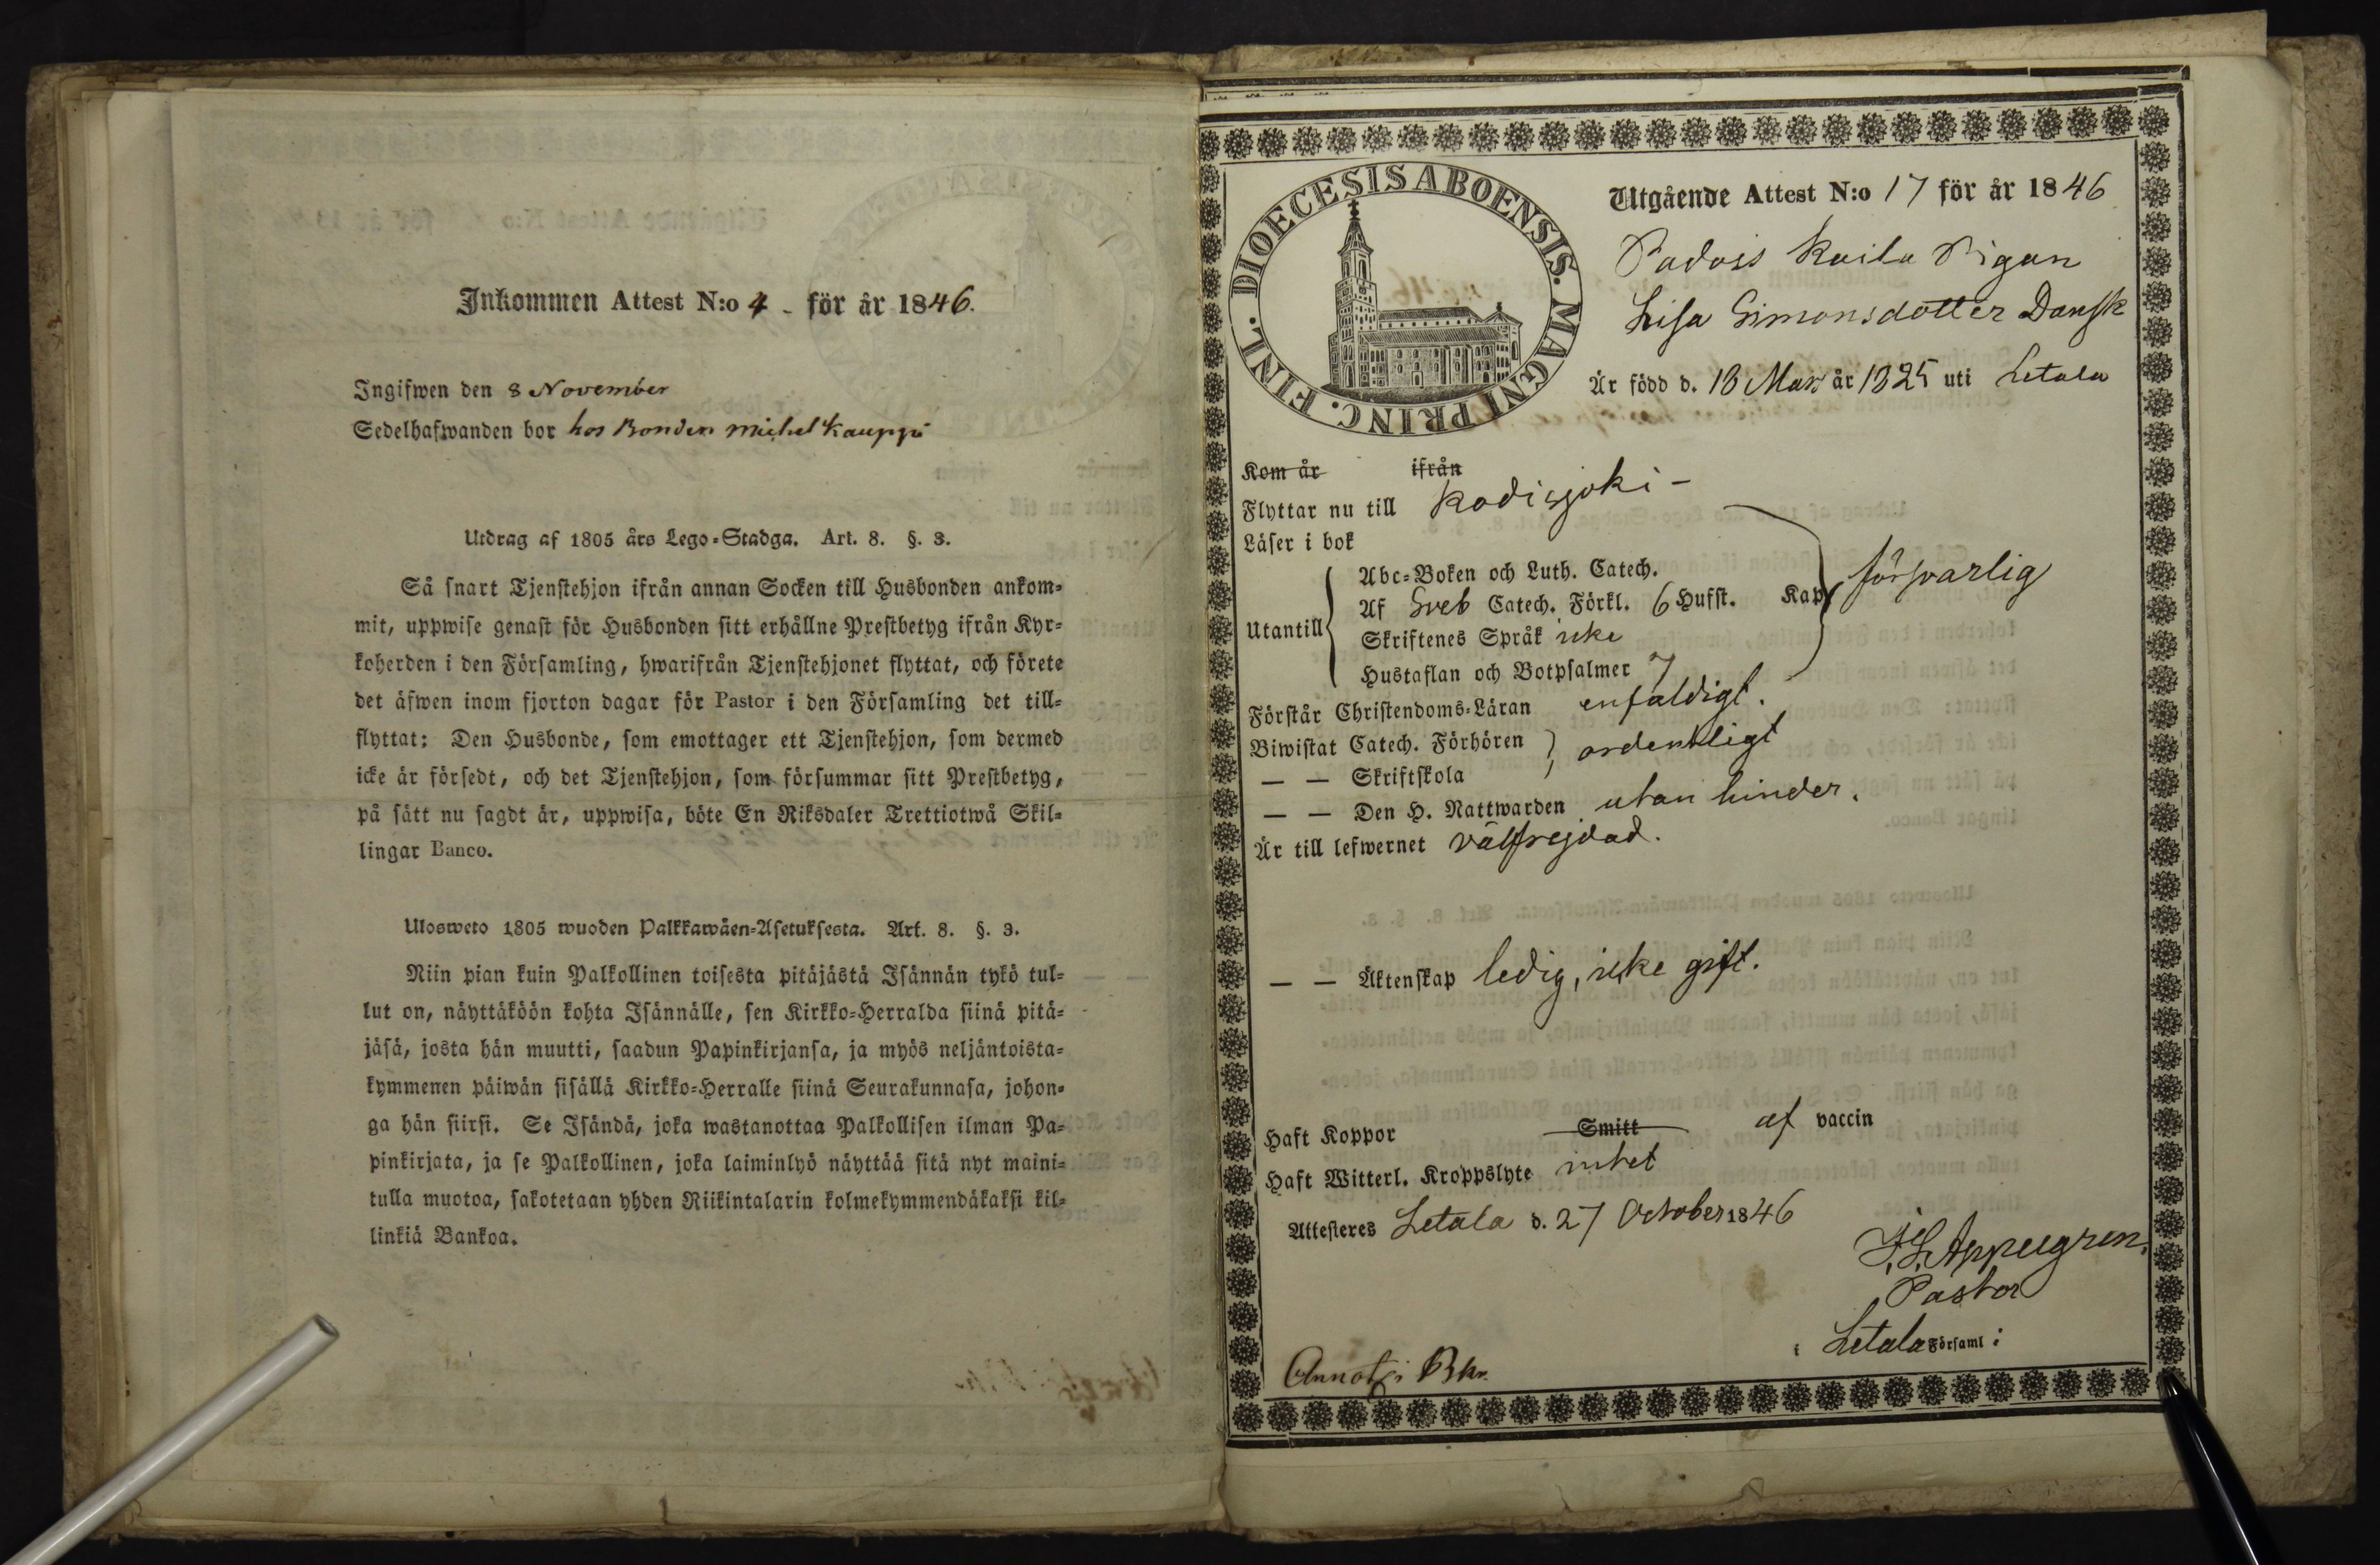 Inkommen Attest N:o 4 - för år 1846.
Ingifwen den 8 November
Sedelhafwanden bor hos Bonden Michel Kauppi
Utdrag af 1805 års Lego-Stadga. Art. 8. §. 3.
Så snart Tjenstehjon ifrån annan Socken till Husbonden ankom-
mit, uppwise genast för Husbonden sitt erhållne Prestbetyg ifrån Kyr-
koherden i den Församling, hwarifrån Tjenstehjonet flyttat, och förete
det äfwen inom fjorton dagar för Pastor i den Församling det till-
flyttat: Den Husbonde, som emottager ett Tjenstehjon, som dermed
icke är försedt, och det Tjenstehjon, som försummar sitt Prestbetyg,
på sätt nu sagdt är, uppwisa, böte En Riksdaler Trettiotwå Skil-
lingar Banco.
Ulosweto 1805 wuoden Palkkawäen-Asetuksesta. Art. 8. §. 3.
Niin pian kuin Palkollinen toisesta pitäjästä Isännän tykö tul-
lut on, näyttäköön kohta Isännälle, sen Kirkko-Herralda siinä pitä-
jäsä, josta hän muutti, saadun Papinkirjansa, ja myös neljäntoista-
kymmenen päiwän sisällä Kirkko-Herralle siinä Seurakunnasa, johon-
ga hän siirsi. Se Isändä, joka wastanottaa Palkollisen ilman Pa-
pinkirjata, ja se Palkollinen, joka laiminlyö näyttää sitä nyt maini-
tulla muotoa, sakotetaan yhden Riikintalarin kolmekymmendäkaksi kil-
linkiä Bankoa.
DIOECESIS ABOENSIS. MAGNI PRINC. FINL.
Utgående Attest N:o 17 för år 1846
Kaila Pigan
Lisa Simonsdotter Dansk
Är född d. 13 Mars år 1825 uti Letala
Kom år ifrån
Flyttar nu till Kodisjoki -
Läser i bok
Utantill
Abc-Boken och Luth. Catech.
Af Sveb Catech. Förkl. 6 Hufst. Kap
Skriftenes Språk icke
Hustaflan och Botpsalmer 7
försvarlig
Förstår Christendoms-Läran enfaldigt.
Biwistat Catech. Förhören ordentligt
— — Skriftskola
— — Den H. Nattwarden utan hinder.
Är till lefwernet välfrejdad.
— — Äktenskap ledig, icke gift.
Haft Koppor Smitt af vaccin
Haft Witterl. Kroppslyte intet
Attesteres Letala d. 27 October 1846
Pastor
i Letala Församl: